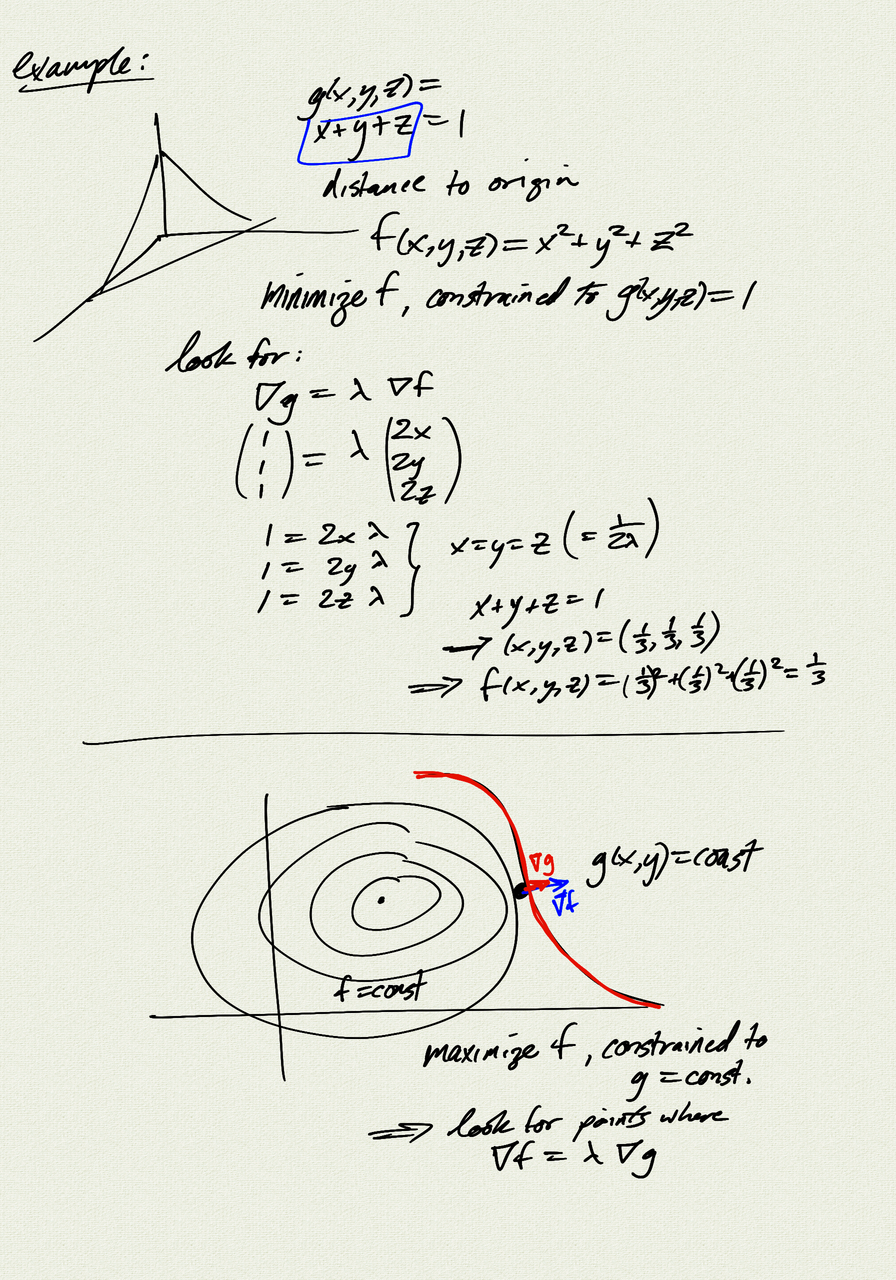 example:
g(x,y,z)=
x+y+z = 1
distance to origin
f(x,y,z) = x²+y²+z²
minimize f, constrained to g(x,y,z)=1
look for:
∇g = λ ∇f
(1 1 1) = λ (2x 2y 2z)
1 = 2x λ
1 = 2y λ
1 = 2z λ
} x=y=z (= 1/2λ)
x+y+z=1
→ (x,y,z)=(1/3, 1/3, 1/3)
⇒ f(x,y,z)=(1/3)²+(1/3)²+(1/3)²= 1/3
∇g
g(x,y)=const
∇f
f=const
maximize f, constrained to
g=const.
⇒ look for points where
∇f = λ ∇g